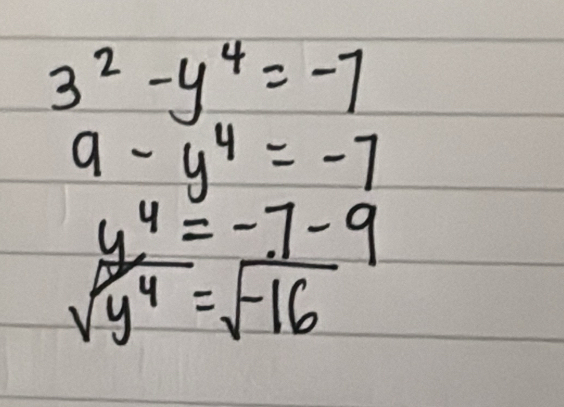 3² - y⁴ = -7
9 - y⁴ = -7
y⁴ = -7 - 9
√y⁴ = √-16